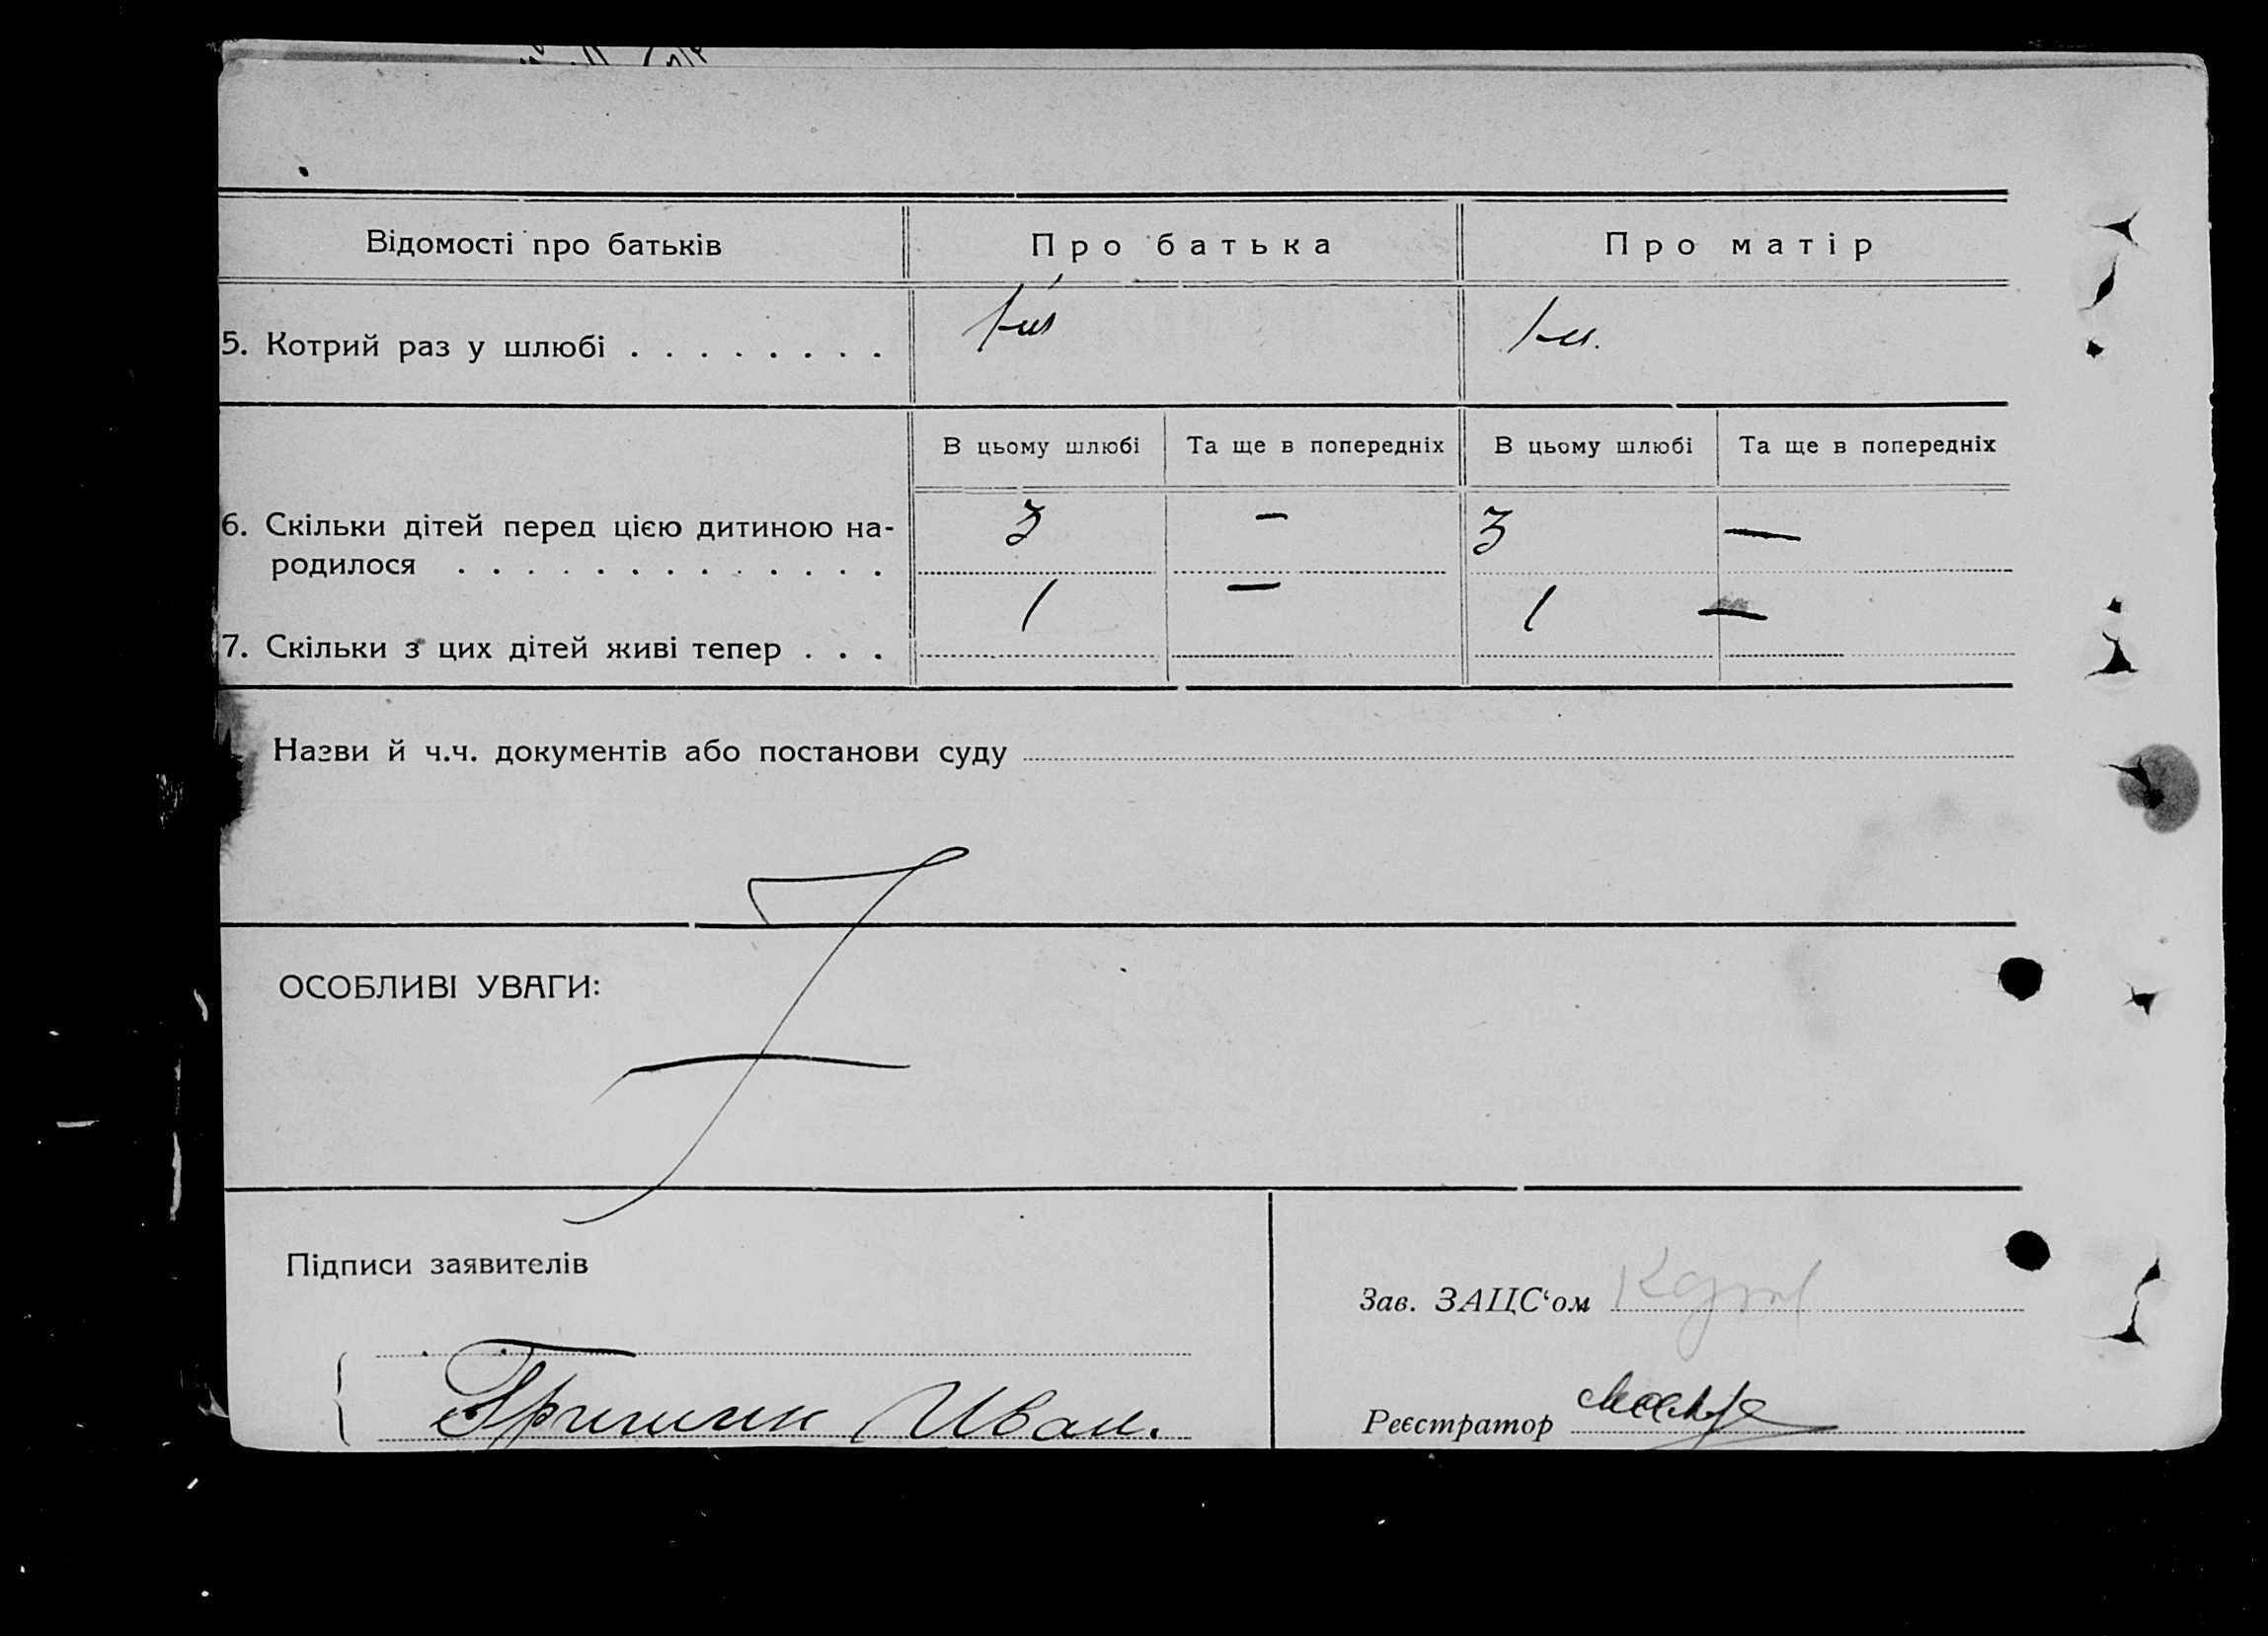 Відомості про батьків
Про батька
Про матір
5. Котрий раз у шлюбі . . . . . . . .
В цьому шлюбі
Та ще в попередніх
В цьому шлюбі
Та ще в попередніх
6. Скільки дітей перед цією дитиною на-
родилося . . . . . . . . . . . . .
3 – 3 —
7. Скільки з цих дітей живі тепер . . .
1 — 1 —
Назви й ч.ч. документів або постанови суду
ОСОБЛИВІ УВАГИ:
Підписи заявителів
Иван.
Зав. ЗАЦС‘ом
Реєстратор